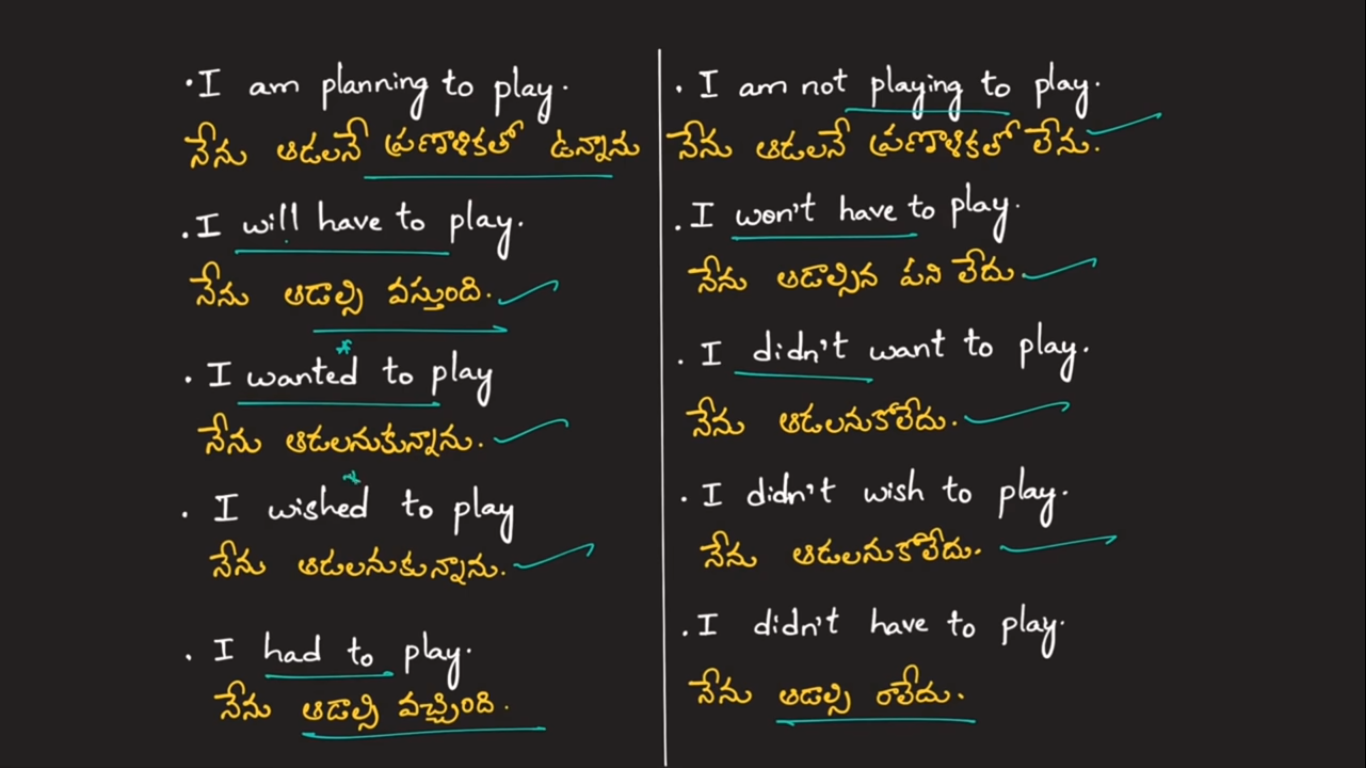 · I am planning to play.
నేను ఆడలనే ప్రణాళికతో ఉన్నాను
. I will have to play.
నేను ఆడాల్సి వస్తుంది.
. I wanted to play
నేను ఆడలనుకున్నాను.
. I wished to play
నేను ఆడలనుకున్నాను.
. I had to play.
నేను ఆడాల్సి వచ్చింది.
. I am not playing to play.
నేను ఆడలనే ప్రణాళికతో లేను.
. I won't have to play.
నేను ఆడాల్సిన పని లేదు
. I didn't want to play.
నేను ఆడలనుకోలేదు.
. I didn't wish to play.
నేను ఆడలనుకోలేదు.
. I didn't have to play.
నేను ఆడాల్సి రాలేదు.